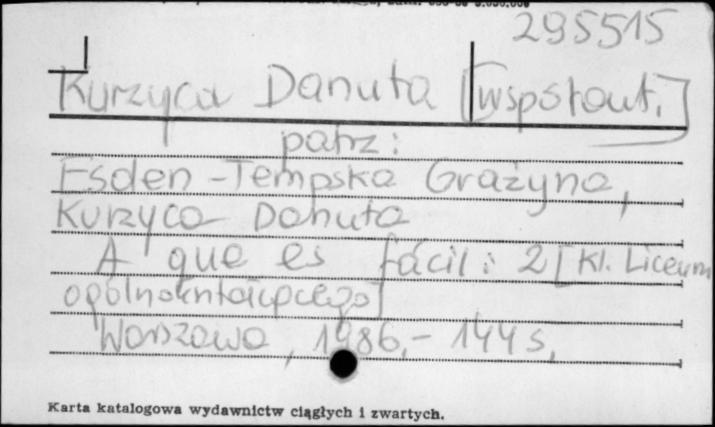 295515
Kurzyca Danuta [współaut.]
patrz:
Esden-Tempska Grażyna,
Kurzyca Danuta
A que es fácil: 2 [kl. Liceum
ogólnokształcącego]
Warszawa, 1986,- 144 s,
Karta katalogowa wydawnictw ciągłych i zwartych.